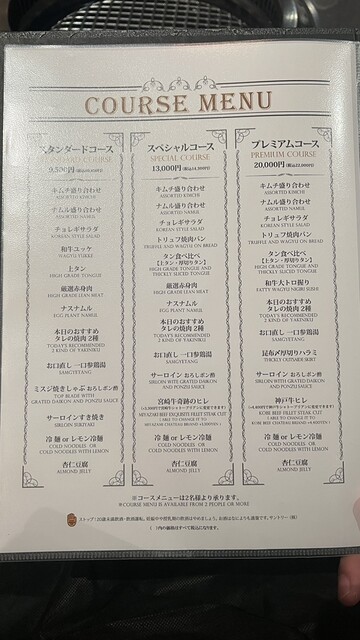 COURSE MENU
スタンダードコース
STANDARD COURSE
9,500円
キムチ盛り合わせ
ASSORTED KIMCHI
ナムル盛り合わせ
ASSORTED NAMUL
チョレギサラダ
KOREAN STYLE SALAD
和牛ユッケ
WAGYU YUKKE
上タン
HIGH GRADE TONGUE
厳選赤身肉
HIGH GRADE LEAN MEAT
ナスナムル
EGG PLANT NAMUL
本日のおすすめ
タレの焼肉2種
TODAY'S RECOMMENDED
2 KIND OF YAKINIKU
お口直し 一口参鶏湯
SAMGYETANG
ミスジ焼きしゃぶ おろしポン酢
TOP BLADE WITH
GRATED DAIKON AND PONZU SAUCE
サーロインすき焼き
SIRLOIN SUKIYAKI
冷麺 or レモン冷麺
COLD NOODLES OR
COLD NOODLES WITH LEMON
杏仁豆腐
ALMOND JELLY
スペシャルコース
SPECIAL COURSE
13,000円 (税込14,300円)
キムチ盛り合わせ
ASSORTED KIMCHI
ナムル盛り合わせ
ASSORTED NAMUL
チョレギサラダ
KOREAN STYLE SALAD
トリュフ焼肉パン
TRUFFLE AND WAGYU ON BREAD
タン食べ比べ
【上タン・厚切りタン】
HIGH GRADE TONGUE AND
THICKLY SLICED TONGUE
厳選赤身肉
HIGH GRADE LEAN MEAT
ナスナムル
EGG PLANT NAMUL
本日のおすすめ
タレの焼肉2種
TODAY'S RECOMMENDED
2 KIND OF YAKINIKU
お口直し 一口参鶏湯
SAMGYETANG
サーロイン おろしポン酢
SIRLOIN WITH GRATED DAIKON
AND PONZU SAUCE
宮崎牛奇跡のヒレ
冷麺 or レモン冷麺
COLD NOODLES OR
COLD NOODLES WITH LEMON
杏仁豆腐
ALMOND JELLY
プレミアムコース
PREMIUM COURSE
20,000円 (税込22,000円)
キムチ盛り合わせ
ASSORTED KIMCHI
ナムル盛り合わせ
ASSORTED NAMUL
チョレギサラダ
KOREAN STYLE SALAD
トリュフ焼肉パン
TRUFFLE AND WAGYU ON BREAD
タン食べ比べ
【上タン・厚切りタン】
HIGH GRADE TONGUE AND
THICKLY SLICED TONGUE
和牛大トロ握り
FATTY WAGYU NIGIRI SUSHI
本日のおすすめ
タレの焼肉2種
TODAY'S RECOMMENDED
2 KIND OF YAKINIKU
お口直し 一口参鶏湯
SAMGYETANG
昆布〆厚切りハラミ
THICKLY OUTSIDE SKIRT
サーロイン おろしポン酢
SIRLOIN WITH GRATED DAIKON
AND PONZU SAUCE
神戸牛ヒレ
冷麺 or レモン冷麺
COLD NOODLES OR
COLD NOODLES WITH LEMON
杏仁豆腐
ALMOND JELLY
※コースメニューは2名様より承ります。
※COURSE MENU IS AVAILABLE FROM 2 PEOPLE OR MORE
ストップ!20歳未満飲酒・飲酒運転。妊娠中や授乳期の飲酒はやめましょう。お酒は楽しく適量で。サントリー(株)
( )内の価格はすべて税込になります。